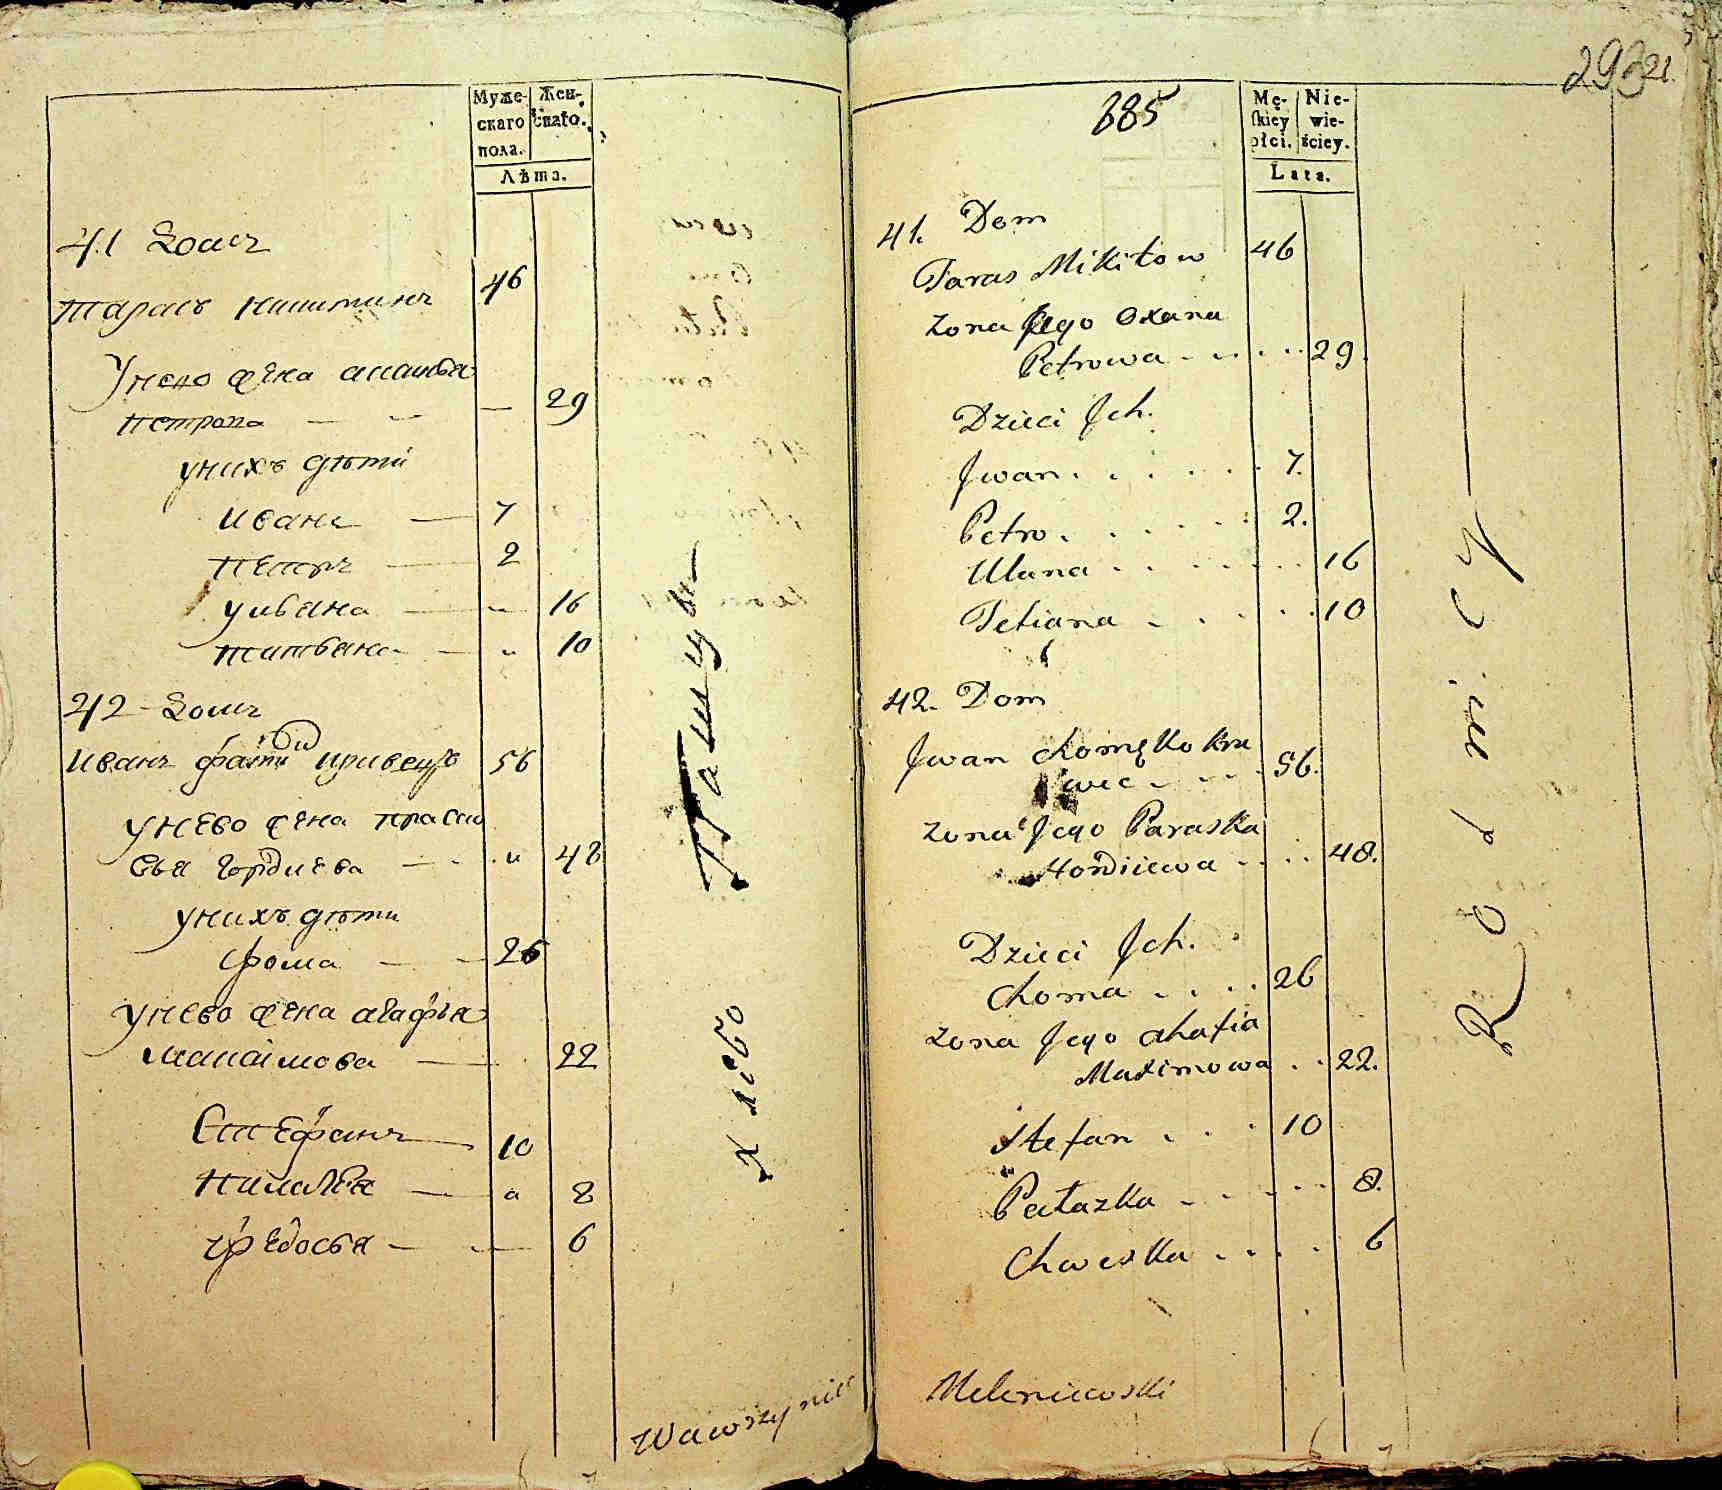 Муже-
скаго
пола.
Жен-
скаго.
Лѣта.
41 Домъ
Тарасъ Никитинъ 46
У него жена
Петрова — 29
у нихъ дѣти
Иванъ — 7
Петръ — 2
Ульяна — 16
Татьяна — 10
42 Домъ
Иванъ 56
У нево жена Праско
вья Гордиева — 48
у нихъ дѣти
Фома — 26
У нево жена Агафья
Максимова — 22
Стефанъ — 10
Пилагѣя — 8
Федосья — 6
хлѣбо
Пашцы
Wawrzyniec
885
21
Mę-
skiey
płci.
Nie-
wie-
ściey.
Lata.
41. Dom
Taras Mikitow 46
zona Jego Oxana
Petrowa 29.
Dzieci Jch.
Jwan 7.
Petro 2.
Ulana 16
Tetiana 10
42. Dom
Jwan Chomętko Kra
wiec 56.
zona Jego Paraska
Hordiiewa 48.
Dzieci Jch.
Choma 26
zona Jego Ahafia
Maximowa 22.
Stefan 10
Pałazka 8.
Chweska 6
Rolnicy
Meleniewski